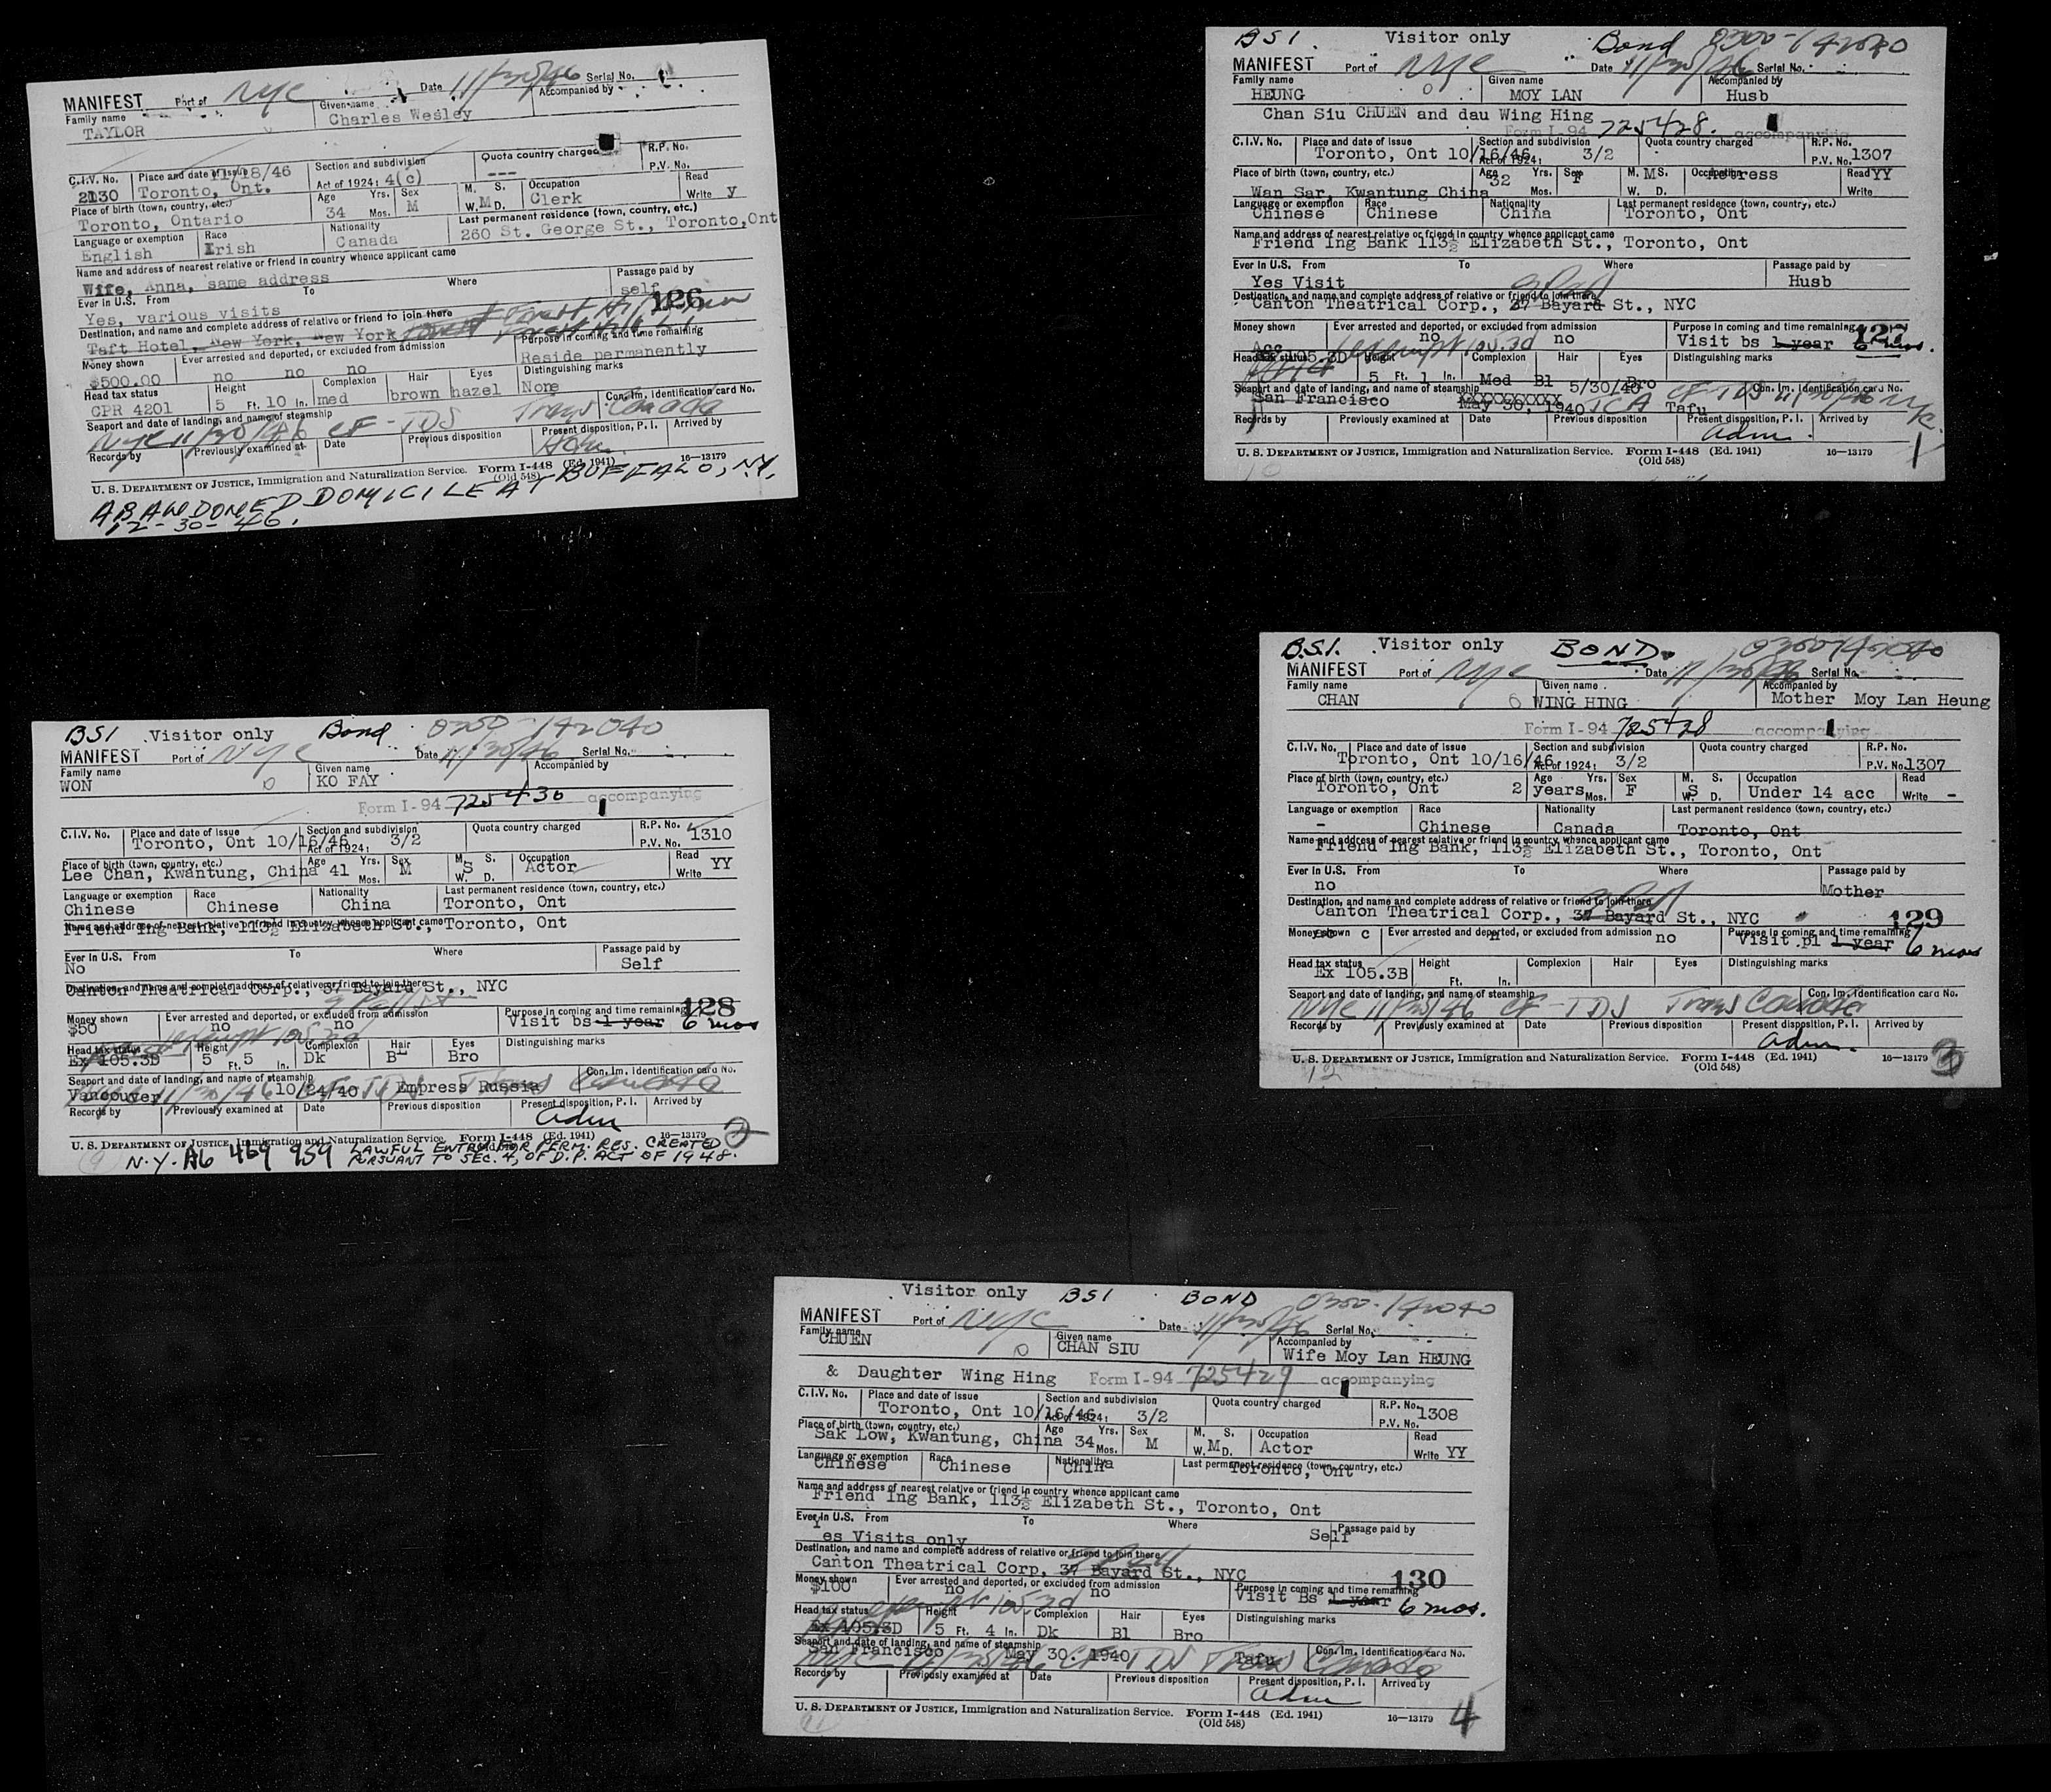 MANIFEST Port of NYC Date 11/30/46 Serial No.
Family name Given name Accompanied by
TAYLOR Charles Wesley
C.I.V. No. Place and date of issue Section and subdivision Quota country charged R.P. No.
11/18/46 Act of 1924: 4(c) --- P.V. No.
2130 Toronto, Ont.
Place of birth (town, country, etc.) Age Yrs. Sex M. S. Occupation Read
Toronto, Ontario 34 Mos. M W. M D. Clerk Write y
Language or exemption Race Nationality Last permanent residence (town, country, etc.)
English Irish Canada 260 St. George St., Toronto, Ont
Name and address of nearest relative or friend in country whence applicant came
Wife, Anna, same address
Ever in U.S. From To Where Passage paid by
Yes, various visits self 126
Destination, and name and complete address of relative or friend to join there
Taft Hotel, New York, New York
Money shown Ever arrested and deported, or excluded from admission Purpose in coming and time remaining
$500.00 no no no Reside permanently
Head tax status Height Complexion Hair Eyes Distinguishing marks
CPR 4201 5 Ft. 10 In. med brown hazel None
Seaport and date of landing, and name of steamship Con. Im. Identification card No.
NYC 11/30/46 CF-TDS Trans Canada
Records by Previously examined at Date Previous disposition Present disposition, P. I. Arrived by
Adm.
U. S. DEPARTMENT OF JUSTICE, Immigration and Naturalization Service. Form I-448 (Ed. 1941) 16—13179
(Old 548)
ABANDONED DOMICILE AT BUFFALO, N.Y.
12-30-46.
BSI. Visitor only Bond 0300-142040
MANIFEST Port of NYC Date 11/30/46 Serial No.
Family name Given name Accompanied by
HEUNG MOY LAN Husb
Chan Siu CHUEN and dau Wing Hing
Form I-94 725428. accompanying
C.I.V. No. Place and date of issue Section and subdivision Quota country charged R.P. No.
Toronto, Ont 10/16/46 Act of 1924: 3/2 P.V. No. 1307
Place of birth (town, country, etc.) Age Yrs. Sex M. S. Occupation Read YY
Wan Sar, Kwantung China 32 Mos. F M W. D. Actress Write
Language or exemption Race Nationality Last permanent residence (town, country, etc.)
Chinese Chinese China Toronto, Ont
Name and address of nearest relative or friend in country whence applicant came
Friend Ing Bank 113½ Elizabeth St., Toronto, Ont
Ever in U.S. From To Where Passage paid by
Yes Visit Husb
Destination, and name and complete address of relative or friend to join there
Canton Theatrical Corp., 37 Bayard St., NYC
Money shown Ever arrested and deported, or excluded from admission Purpose in coming and time remaining 127
Acc no no Visit bs 1 year 6 mos.
Head tax status Height Complexion Hair Eyes Distinguishing marks
Ex 105.3D exempt 105.3d 5 Ft. 1 In. Med Bl Bro
Seaport and date of landing, and name of steamship 5/30/40 Con. Im. Identification card No.
San Francisco XXXXXXXXXX May 30, 1940 TCA Tafu CF-TDS 11/30/46 NYC
Records by Previously examined at Date Previous disposition Present disposition, P. I. Arrived by
Adm.
U. S. DEPARTMENT OF JUSTICE, Immigration and Naturalization Service. Form I-448 (Ed. 1941) 16—13179
(Old 548) 1
BSI Visitor only Bond 0300-142040
MANIFEST Port of NYC Date 11/30/46 Serial No.
Family name Given name Accompanied by
WON KO FAY
Form I-94 725430 accompanying
C.I.V. No. Place and date of issue Section and subdivision Quota country charged R.P. No.
Toronto, Ont 10/16/46 Act of 1924: 3/2 P.V. No. 1310
Place of birth (town, country, etc.) Age Yrs. Sex M. S. Occupation Read YY
Lee Chan, Kwantung, China 41 Mos. M S W. D. Actor Write
Language or exemption Race Nationality Last permanent residence (town, country, etc.)
Chinese Chinese China Toronto, Ont
Name and address of nearest relative or friend in country whence applicant came
Friend Ing Bank, 113½ Elizabeth St., Toronto, Ont
Ever in U.S. From To Where Passage paid by
No Self
Destination, and name and complete address of relative or friend to join there
Canton Theatrical Corp., 37 Bayard St., NYC
Money shown Ever arrested and deported, or excluded from admission Purpose in coming and time remaining 128
$50 no no Visit bs 1 year 6 mos
Head tax status Height Complexion Hair Eyes Distinguishing marks
Ex 105.3D exempt 105.3d 5 Ft. 5 In. Dk Bl Bro
Seaport and date of landing, and name of steamship Con. Im. Identification card No.
Vancouver 10/24/40 Empress Russia NYC 11/30/46 CF-TDS Trans Canada
Records by Previously examined at Date Previous disposition Present disposition, P. I. Arrived by
Adm
U. S. DEPARTMENT OF JUSTICE, Immigration and Naturalization Service. Form I-448 (Ed. 1941) 16—13179 2
N.Y. A6 469 959 LAWFUL ENTRY FOR PERM. RES. CREATED
PURSUANT TO SEC. 4, OF D.P. ACT OF 1948.
B.S.I. Visitor only BOND. 0300-142040
MANIFEST Port of NYC Date 11/30/46 Serial No.
Family name Given name Accompanied by
CHAN WING HING Mother Moy Lan Heung
Form I-94 725428 accompanying
C.I.V. No. Place and date of issue Section and subdivision Quota country charged R.P. No.
Toronto, Ont 10/16/46 Act of 1924: 3/2 P.V. No. 1307
Place of birth (town, country, etc.) Age Yrs. Sex M. S. Occupation Read
Toronto, Ont 2 years Mos. F S W. D. Under 14 acc Write -
Language or exemption Race Nationality Last permanent residence (town, country, etc.)
- Chinese Canada Toronto, Ont
Name and address of nearest relative or friend in country whence applicant came
Friend Ing Bank, 113½ Elizabeth St., Toronto, Ont
Ever in U.S. From To Where Passage paid by
no Mother
Destination, and name and complete address of relative or friend to join there
Canton Theatrical Corp., 37 Bayard St., NYC 129
Money shown Ever arrested and deported, or excluded from admission Purpose in coming and time remaining
no Visit pl 1 year 6 mos
Head tax status Height Complexion Hair Eyes Distinguishing marks
Ex 105.3B Ft. In.
Seaport and date of landing, and name of steamship Con. Im. Identification card No.
NYC 11/30/46 CF-TDS Trans Canada
Records by Previously examined at Date Previous disposition Present disposition, P. I. Arrived by
Adm.
U. S. DEPARTMENT OF JUSTICE, Immigration and Naturalization Service. Form I-448 (Ed. 1941) 16—13179 3
(Old 548)
12
Visitor only BSI BOND 0300-142040
MANIFEST Port of NYC Date 11/30/46 Serial No.
Family name Given name Accompanied by
CHUEN CHAN SIU Wife Moy Lan HEUNG
& Daughter Wing Hing Form I-94 725429 accompanying
C.I.V. No. Place and date of issue Section and subdivision Quota country charged R.P. No.
Toronto, Ont 10/16/46 Act of 1924: 3/2 P.V. No. 1308
Place of birth (town, country, etc.) Age Yrs. Sex M. S. Occupation Read
Sak Low, Kwantung, China 34 Mos. M W. M D. Actor Write YY
Language or exemption Race Nationality Last permanent residence (town, country, etc.)
Chinese Chinese China Toronto, Ont
Name and address of nearest relative or friend in country whence applicant came
Friend Ing Bank, 113½ Elizabeth St., Toronto, Ont
Ever in U.S. From To Where Passage paid by
Yes Visits only Self
Destination, and name and complete address of relative or friend to join there
Canton Theatrical Corp, 37 Bayard St., NYC 130
Money shown Ever arrested and deported, or excluded from admission Purpose in coming and time remaining
$100 no no Visit Bs 1 year 6 mos.
Head tax status Height Complexion Hair Eyes Distinguishing marks
Ex 105.3D exempt 105.3d 5 Ft. 4 In. Dk Bl Bro
Seaport and date of landing, and name of steamship Con. Im. Identification card No.
San Francisco May 30, 1940 Tafu NYC 11/30/46 CF-TDS Trans Canada
Records by Previously examined at Date Previous disposition Present disposition, P. I. Arrived by
Adm
U. S. DEPARTMENT OF JUSTICE, Immigration and Naturalization Service. Form I-448 (Ed. 1941) 16—13179 4
(Old 548)